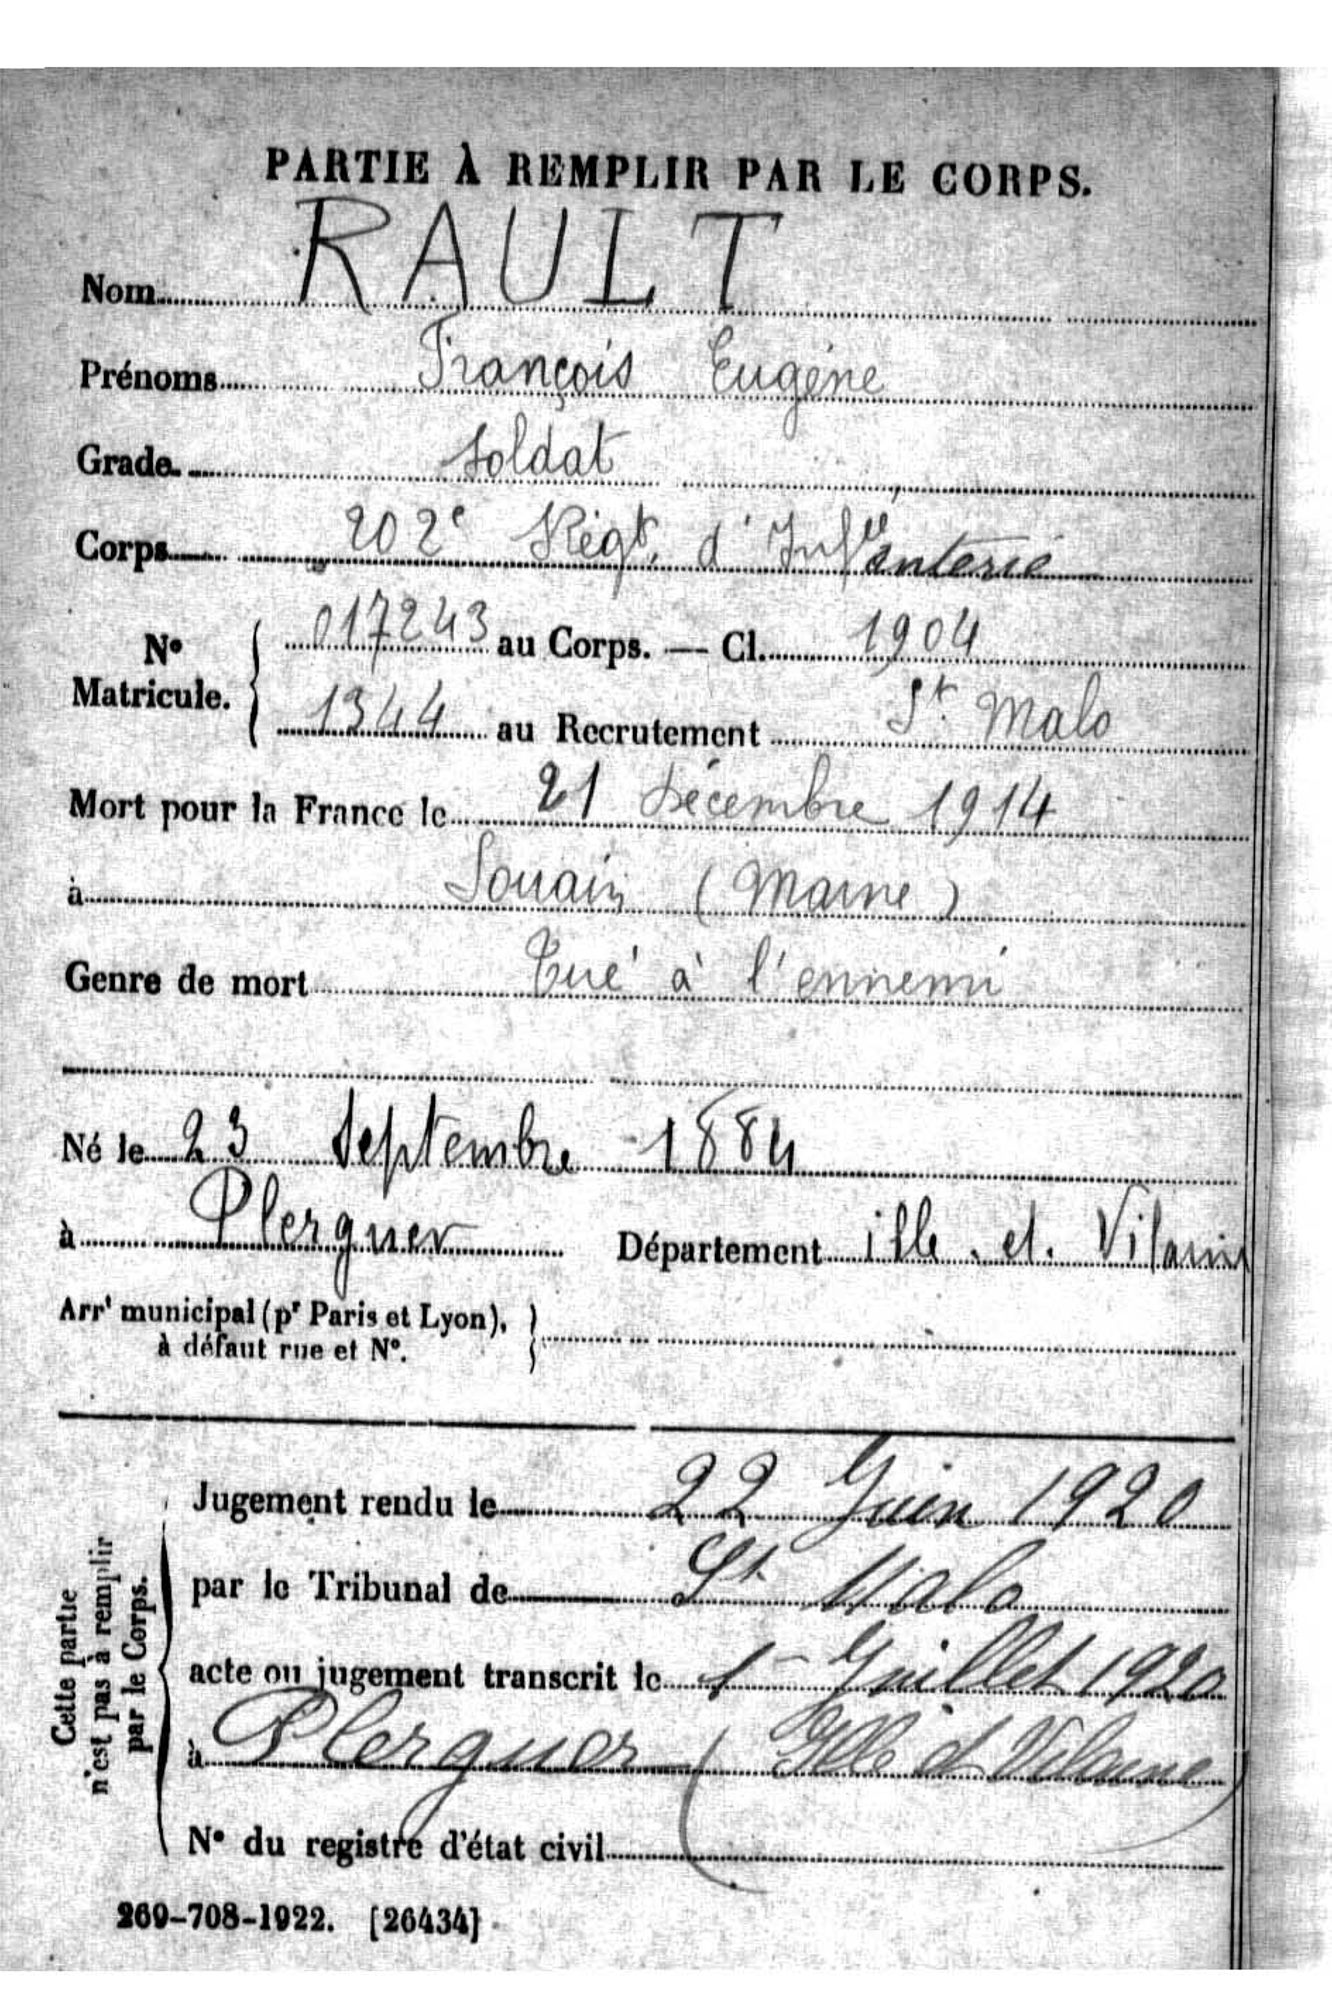 PARTIE À REMPLIR PAR LE CORPS.
Nom RAULT
Prénoms François Eugène
Grade Soldat
Corps 202e Régt. d'Infanterie
No Matricule. { 017243 au Corps. — Cl. 1904
1344 au Recrutement St. Malo
Mort pour la France le 21 Décembre 1914
à Souain (Marne)
Genre de mort Tué à l'ennemi
Né le 23 Septembre 1884
à Plerguer Département ille et Vilaine
Arrt municipal (pr Paris et Lyon),
à défaut rue et No. }
Cette partie n'est pas à remplir par le Corps.
Jugement rendu le 22 Juin 1920
par le Tribunal de St Malo
acte ou jugement transcrit le 1 Juillet 1920
à Plerguer (Ille et Vilaine)
No du registre d'état civil
269-708-1922. [26434]